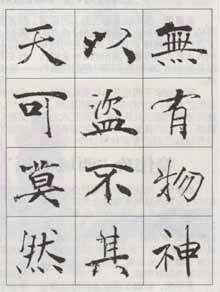 無有物神
以盜不其
天可莫然